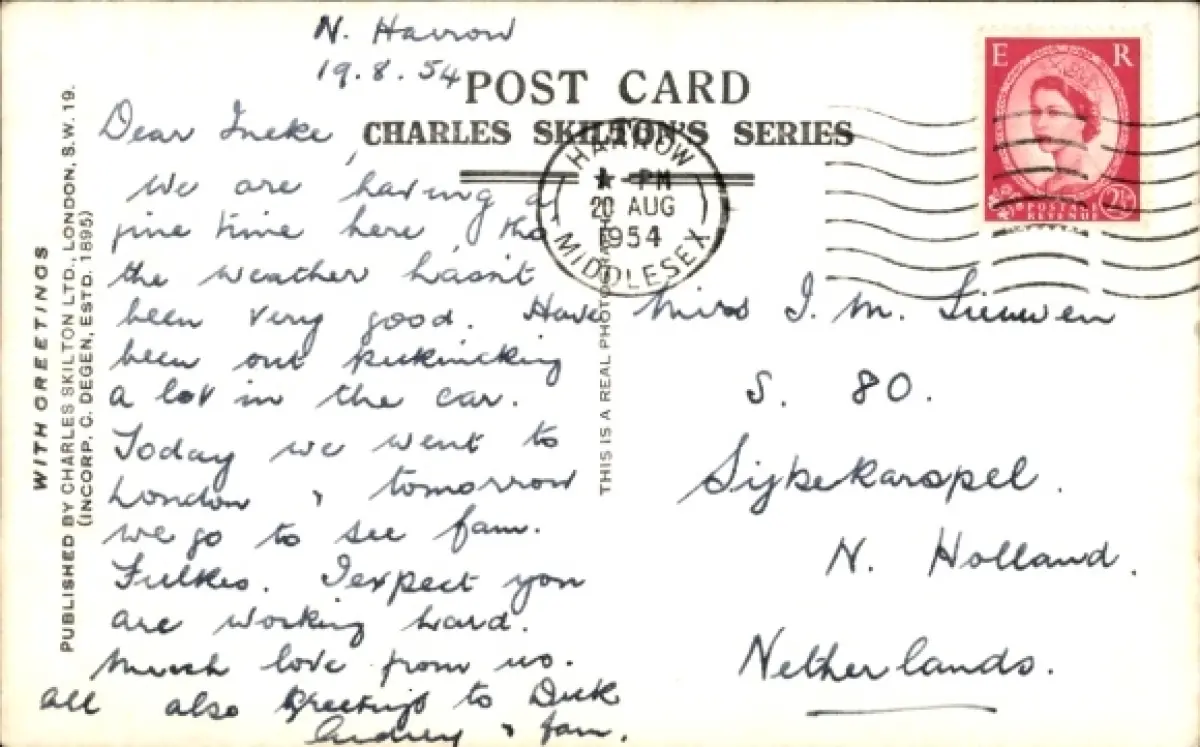 N. Harrow
19.8.54
POST CARD
CHARLES SKILTON'S SERIES
Dear Ineke,
We are having a
fine time here, tho
the weather hasn't
been very good. Have
been out picknicking
a lot in the car.
Today we went to
London & tomorrow
we go to see fam.
I expect you
are working hard.
Much love from us
all also greetings to Dick
& fam.
Audrey
E R
POSTAGE
REVENUE
2½
HARROW
PM
20 AUG
1954
MIDDLESEX
Miss I. M. Lieuwen
S. 80.
Sijbekarspel.
N. Holland.
Netherlands.
WITH GREETINGS
PUBLISHED BY CHARLES SKILTON LTD., LONDON, S.W. 19.
(INCORP. C. DEGEN, ESTD. 1895)
THIS IS A REAL PHOTO